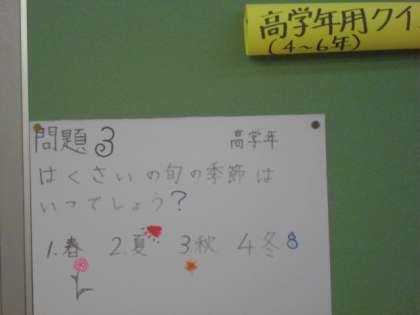 高学年用クイ
(4～6年)
問題3 高学年
はくさいの旬の季節は
いつでしょう?
1.春 2.夏 3.秋 4冬